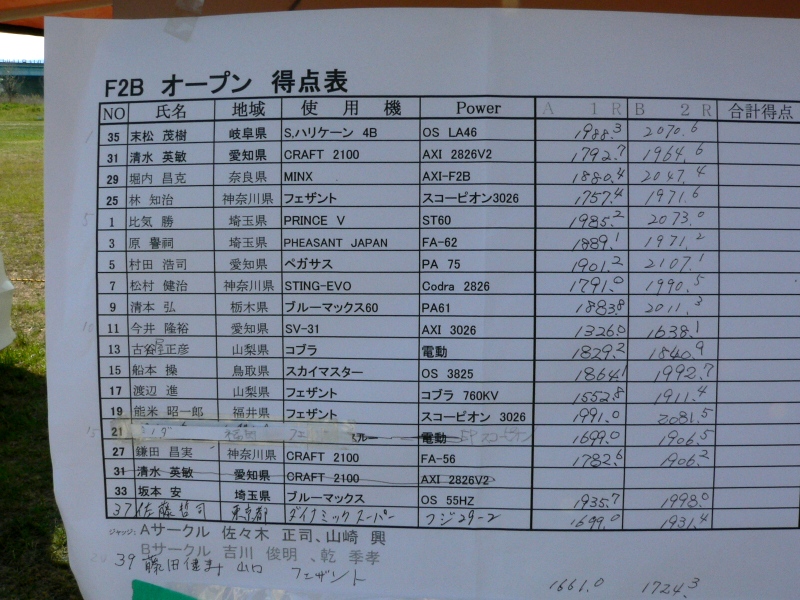 F2B オープン 得点表
NO 氏名 地域 使用機 Power A 1R B 2R 合計得点
35 末松 茂樹 岐阜県 S,ハリケーン 4B OS LA46 1988.3 2070.6
31 清水 英敏 愛知県 CRAFT 2100 AXI 2826V2 1792.7 1964.6
29 堀内 昌克 奈良県 MINX AXI-F2B 1880.4 2047.4
25 林 知治 神奈川県 フェザント スコーピオン3026 1757.4 1971.6
1 比気 勝 埼玉県 PRINCE V ST60 1985.2 2073.0
3 原 譽祠 埼玉県 PHEASANT JAPAN FA-62 1889.1 1971.2
5 村田 浩司 愛知県 ペガサス PA 75 1901.2 2107.1
7 松村 健治 神奈川県 STING-EVO Codra 2826 1791.0 1990.5
9 清本 弘 栃木県 ブルーマックス60 PA61 1883.8 2011.3
11 今井 隆裕 愛知県 SV-31 AXI 3026 1326.0 1638.1
13 古谷 正彦 山梨県 コブラ 電動 1829.2 1840.9
15 船本 操 鳥取県 スカイマスター OS 3825 1864.1 1992.7
17 渡辺 進 山梨県 フェザント コブラ 760KV 1552.8 1911.4
19 能米 昭一郎 福井県 フェザント スコーピオン 3026 1991.0 2081.5
21 電動 スコーピオン 1699.0 1906.5
27 鎌田 昌実 神奈川県 CRAFT 2100 FA-56 1782.6 1906.2
31 清水 英敏 愛知県 CRAFT 2100 AXI 2826V2
33 坂本 安 埼玉県 ブルーマックス OS 55HZ 1935.7 1998.0
37 佐藤 哲司 東京都 ダイナミックスーパー フジ29-2 1699.0 1931.4
ジャッジ: Aサークル 佐々木 正司、山崎 興
Bサークル 吉川 俊明 、乾 季孝
39 藤田 山口 フェザント 1661.0 1724.3